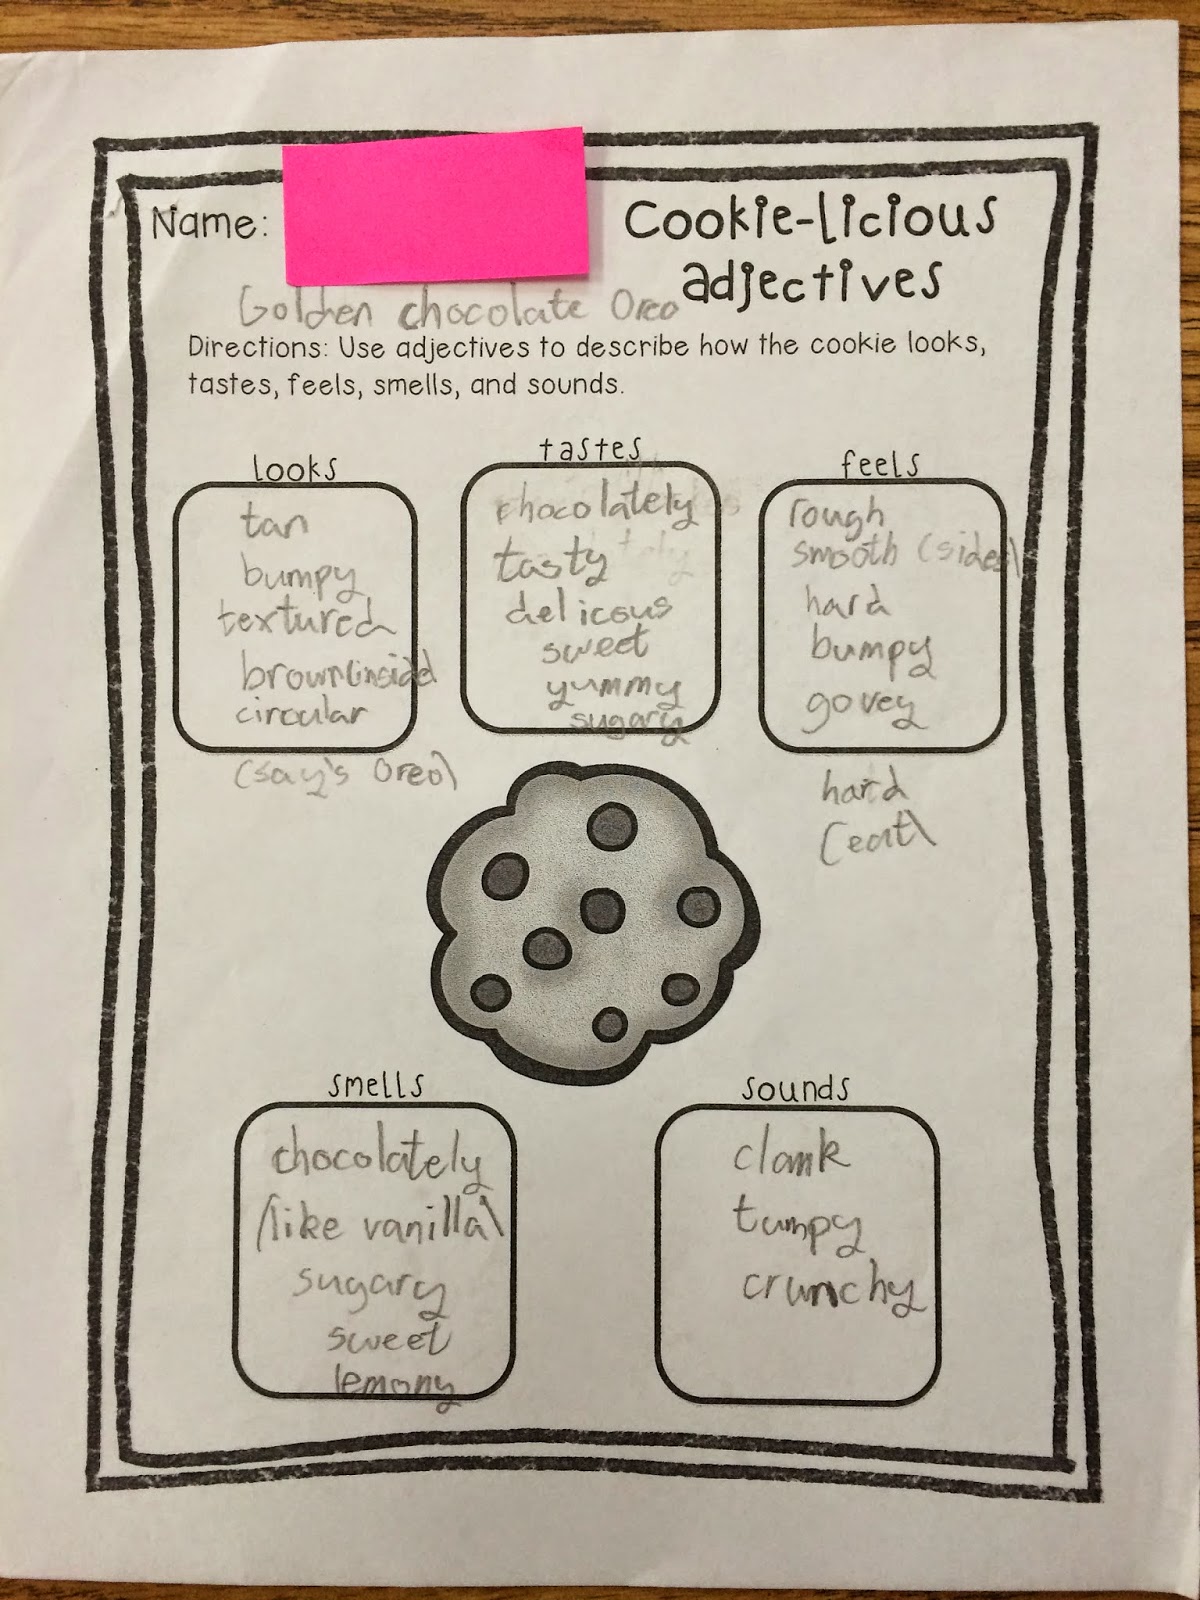 Name:
Cookie-licious
adjectives
Golden chocolate Oreo
Directions: Use adjectives to describe how the cookie looks,
tastes, feels, smells, and sounds.
looks
tan
bumpy
textured
brown(insid
circular
(say's Oreo)
tastes
chocolately
tasty
delicous
sweet
yummy
sugary
feels
rough
smooth (sides)
hard
bumpy
govey
hard
(eat)
smells
chocolately
(like vanilla)
sugary
sweet
lemony
sounds
clank
tumpy
crunchy